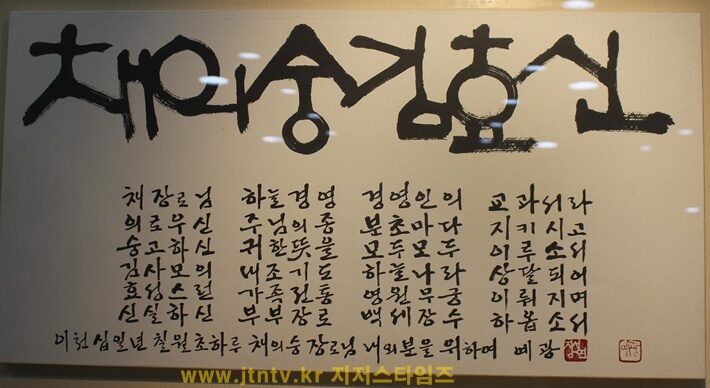 채의숭김효신
채장로님 하늘경영 경영인의 교과서라
의로우신 주님의종 분초마다 지키시고
숭고하신 귀한뜻을 모두모두 이루소서
김사모의 내조기도 하늘나라 상달되어
효성스런 가족전통 영원무궁 이뤄지며
신실하신 부부장로 백세장수 하옵소서
이천십일년 칠월초하루 채의숭장로님 내외분을 위하여 예광
www.jtntv.kr 지저스타임즈